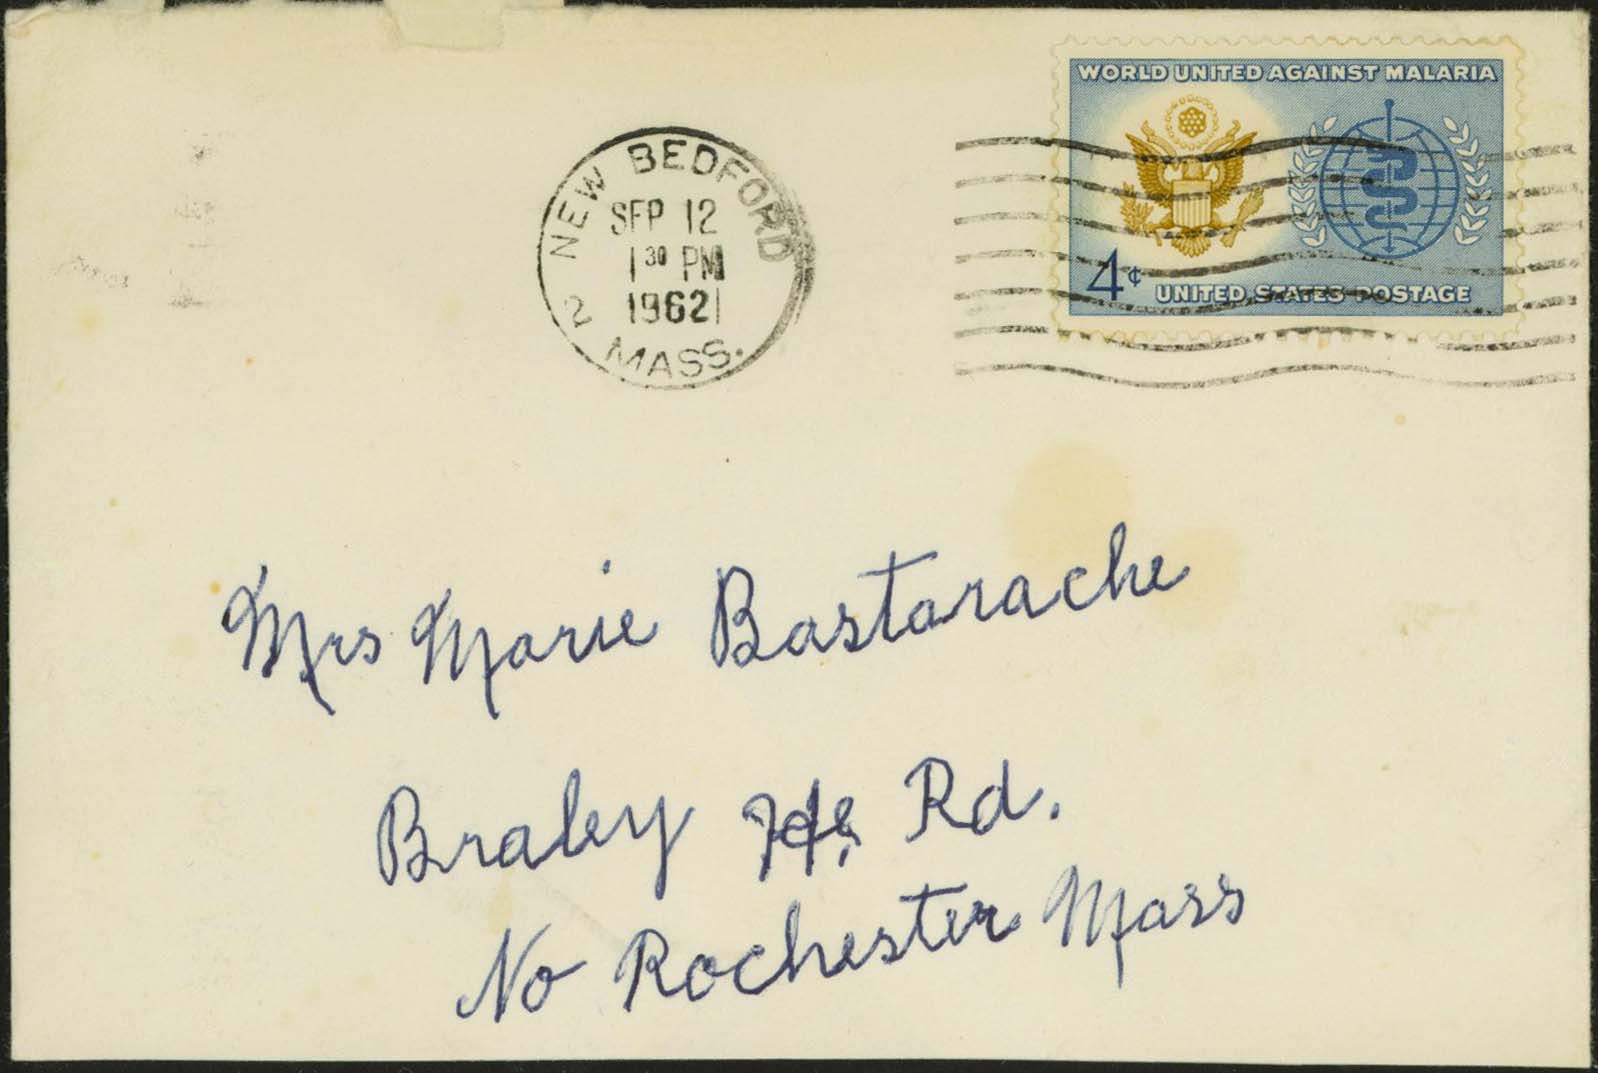 WORLD UNITED AGAINST MALARIA
4¢ UNITED STATES POSTAGE
NEW BEDFORD
SEP 12
1 30 PM
1962
2 MASS.
Mrs Marie Bastarache
Braley Rd.
No Rochester Mass